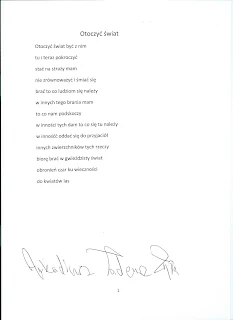 Otoczyć świat
Otoczyć świat być z nim
tu i teraz pokroczyć
stać na straży mam
nie zrównoważyć i śmiać się
brać to co ludziom się należy
w innych tego braniu mam
to co nam podskoczy
w inności tych dam to co się tu należy
w inność oddać się do przyjaciół
innych zwierzchników tych rzeczy
biorę brać w gwieździsty świat
obronień czar ku wieczności
do kwiatów las
Arkadiusz Tadeusz
1